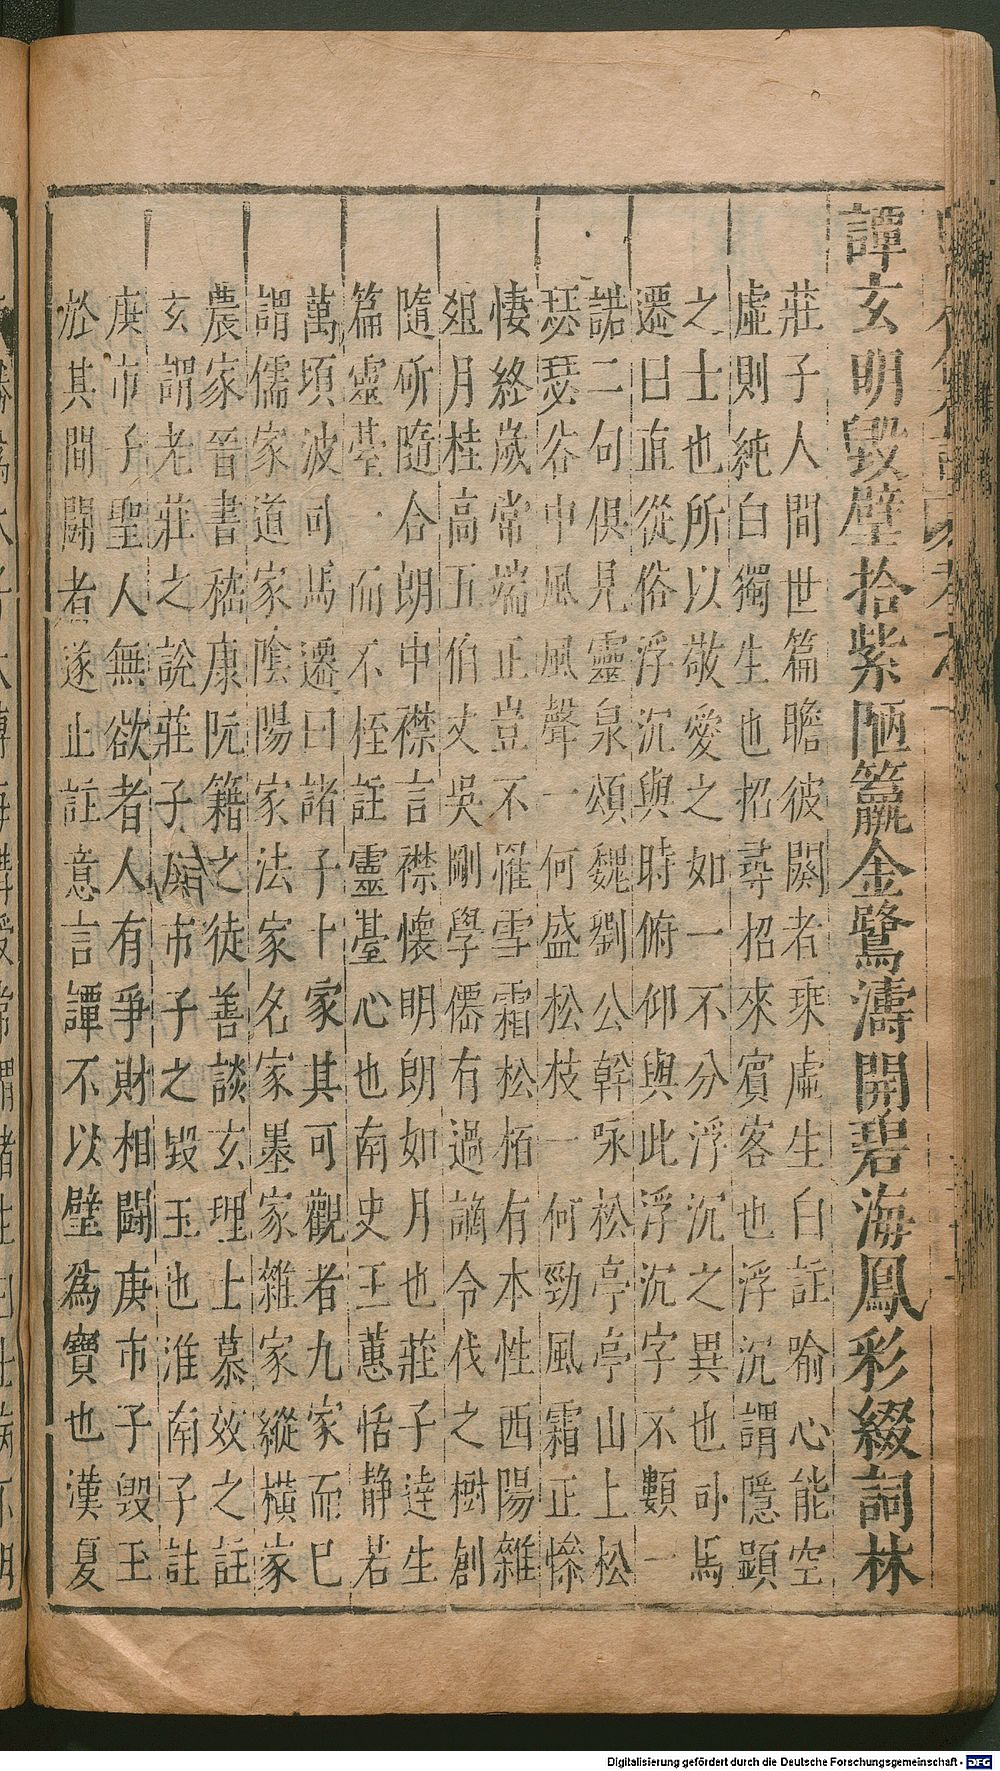 譚玄明毀壁拾紫陋籯金鷺濤開碧海鳳彩綴詞林
莊子人間世篇瞻彼闋者乗虛生白註喻心能空
虛則純白獨生也招尋招來賓客也浮沉謂隱顯
之士也所以敬愛之如一不分浮沉之異也司馬
遷曰直從俗浮沉與時俯仰與此浮沉字不類一
諾二句俱見靈泉頌魏劉公幹咏松亭亭山上松
瑟瑟谷中風風聲一何盛松枝一何勁風霜正慘
悽終歲常端正豈不罹雪霜松栢有本性西陽雜
爼月桂高五伯丈吳剛學僊有過謫令伐之樹創
隨斫隨合朗申襟言襟懷明朗如月也莊子達生
篇靈䑓一而不桎註靈䑓心也南史王蕙恬静若
萬頃波司馬遷曰諸子十家其可觀者九家而已
謂儒家道家陰陽家法家名家墨家雜家縱橫家
農家晉書嵇康阮籍之徒善談玄理士慕效之註
玄謂老莊之說莊子庚市子之毀玉也淮南子註
庚市子聖人無欲者人有爭財相鬪庚市子毀玉
於其間鬪者遂止註意言譚不以壁爲寶也漢夏
Digitalisierung gefördert durch die Deutsche Forschungsgemeinschaft - DFG